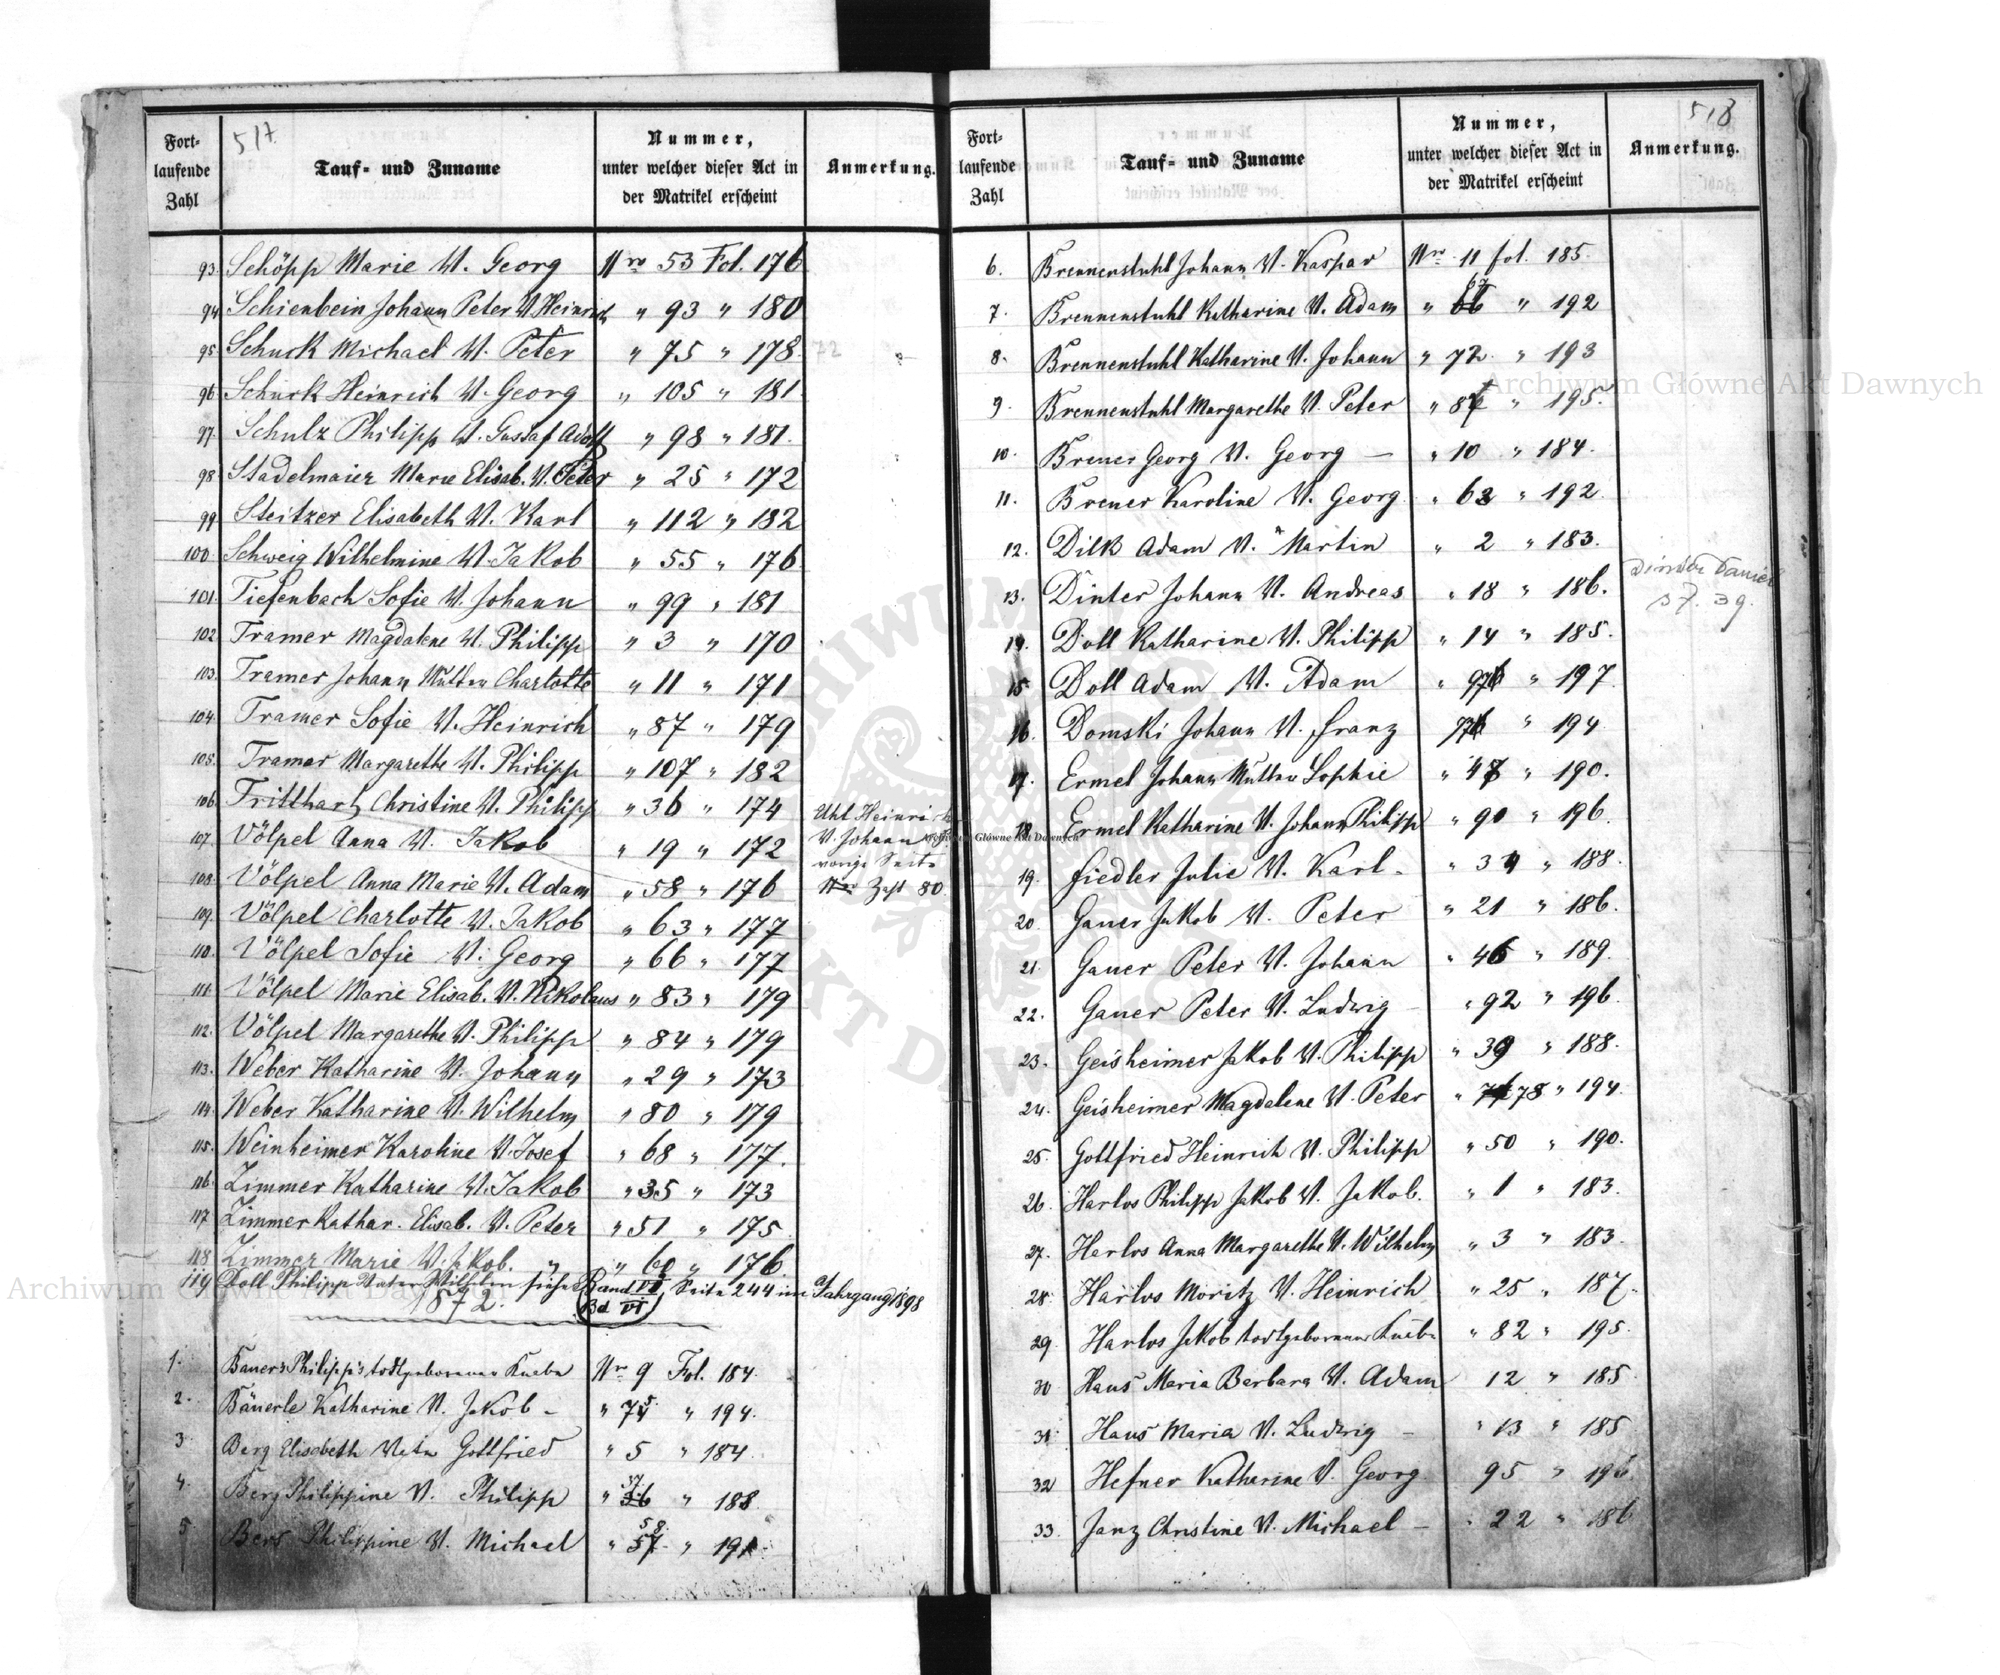 517
Fort-
laufende
Zahl
Tauf- und Zuname
Nummer,
unter welcher dieser Act in
der Matrikel erscheint
Anmerkung.
93. Schöpp Marie V. Georg Nro 53 Fol. 176
94. Schienbein Johann Peter V. Heinrich " 93 " 180
95. Schuck Michael V. Peter " 75 " 178. 72
96. Schuck Heinrich V. Georg " 105 " 181.
97. Schulz Philipp V. Gustaf Adolf " 98 " 181.
98. Stadelmaier Marie Elisab. V. Peter " 25 " 172
99. Steitzer Elisabeth V. Karl " 112 " 182
100. Schweig Wilhelmine V. Jakob " 55 " 176
101. Tiefenbach Sofie V. Johann " 99 " 181
102. Tramer Magdalene V. Philipp " 3 " 170
103. Tramer Johann Mutter Charlotte " 11 " 171
104. Tramer Sofie V. Heinrich " 87 " 179
105. Tramer Margarethe V. Philipp " 107 " 182
106. Tritthart Christine V. Philipp " 36 " 174
Uhl Heinrich
V. Johann
vorige Seite
Zahl 80
107. Völpel Anna V. Jakob " 19 " 172
108. Völpel Anna Marie V. Adam " 58 " 176
109. Völpel Charlotte V. Jakob " 63 " 177
110. Völpel Sofie V. Georg " 66 " 177
111. Völpel Marie Elisab. V. Nikolaus " 83 " 179
112. Völpel Margarethe V. Philipp " 84 " 179
113. Weber Katharine V. Johann " 29 " 173
114. Weber Katharine V. Wilhelm " 80 " 179
115. Weinheimer Karoline V. Josef " 68 " 177.
116. Zimmer Katharine V. Jakob " 35 " 173
117 Zimmer Kathar. Elisab. V. Peter " 51 " 175
118 Zimmer Marie V. Jakob. " " 60 " 176
119 Doll Philipp Vater Wilhelm siehe Band VI Seite 244 im Jahrgang 1898
Bd VI
1872.
1. Bauer's Philipp's todtgeborener Knabe Nr 9 Fol. 184.
2. Bäuerle Katharine V. Jakob - " 74 5 " 194.
3 Berg Elisabeth Vater Gottfried " 5 " 184.
4. Berg Philippine V. Philipp " 36 37 " 188.
5. Berg Philippine V. Michael " 57 58 " 191.
518
Fort-
laufende
Zahl
Tauf- und Zuname
Nummer,
unter welcher dieser Act in
der Matrikel erscheint
Anmerkung.
6. Brennenstuhl Johann V. Kaspar Nr 11 fol. 185.
7. Brennenstuhl Katharine V. Adam " 66 67 " 192
8. Brennenstuhl Katharine V. Johann " 72 " 193
9. Brennenstuhl Margarethe V. Peter " 87 " 195.
10. Brener Georg V. Georg — " 10 " 184.
11. Brener Karoline V. Georg " 63 " 192.
12. Dilk Adam V. Martin " 2 " 183.
13. Dinter Johann V. Andreas " 18 " 186.
Dinter Daniel
37. 39.
14. Doll Katharine V. Philipp " 14 " 185.
15 Doll Adam V. Adam " 97 " 197.
16. Domski Johann V. Franz 77 " 194.
17. Ermel Johann Mutter Sophie " 47 " 190.
18. Ermel Katharine V. Johann Philipp " 90 " 196.
19. Fiedler Julie V. Karl - " 34 " 188.
20 Gauer Jakob V. Peter " 21 " 186.
21. Gauer Peter V. Johann " 46 " 189.
22. Gauer Peter V. Ludwig — " 92 " 196.
23. Geisheimer Jakob V. Philipp " 39 " 188.
24. Geisheimer Magdalene V. Peter " 78 " 194.
25. Gottfried Heinrich V. Philipp " 50 " 190.
26. Harlos Philipp Jakob V. Jakob. " 1 " 183.
27. Harlos Anna Margarethe V. Wilhelm " 3 " 183.
28. Harlos Moritz V. Heinrich " 25 " 187.
29. Harlos Jakob todtgeborener Knabe " 82 " 195.
30 Haus Maria Barbara V. Adam 12 " 185
31. Haus Maria V. Ludwig — " 13 " 185
32 Hefner Katharine V. Georg 95 " 196
33. Janz Christine V. Michael — " 22 " 186
Archiwum Główne Akt Dawnych
Archiwum Główne Akt Dawnych
Archiwum Główne Akt Dawnych